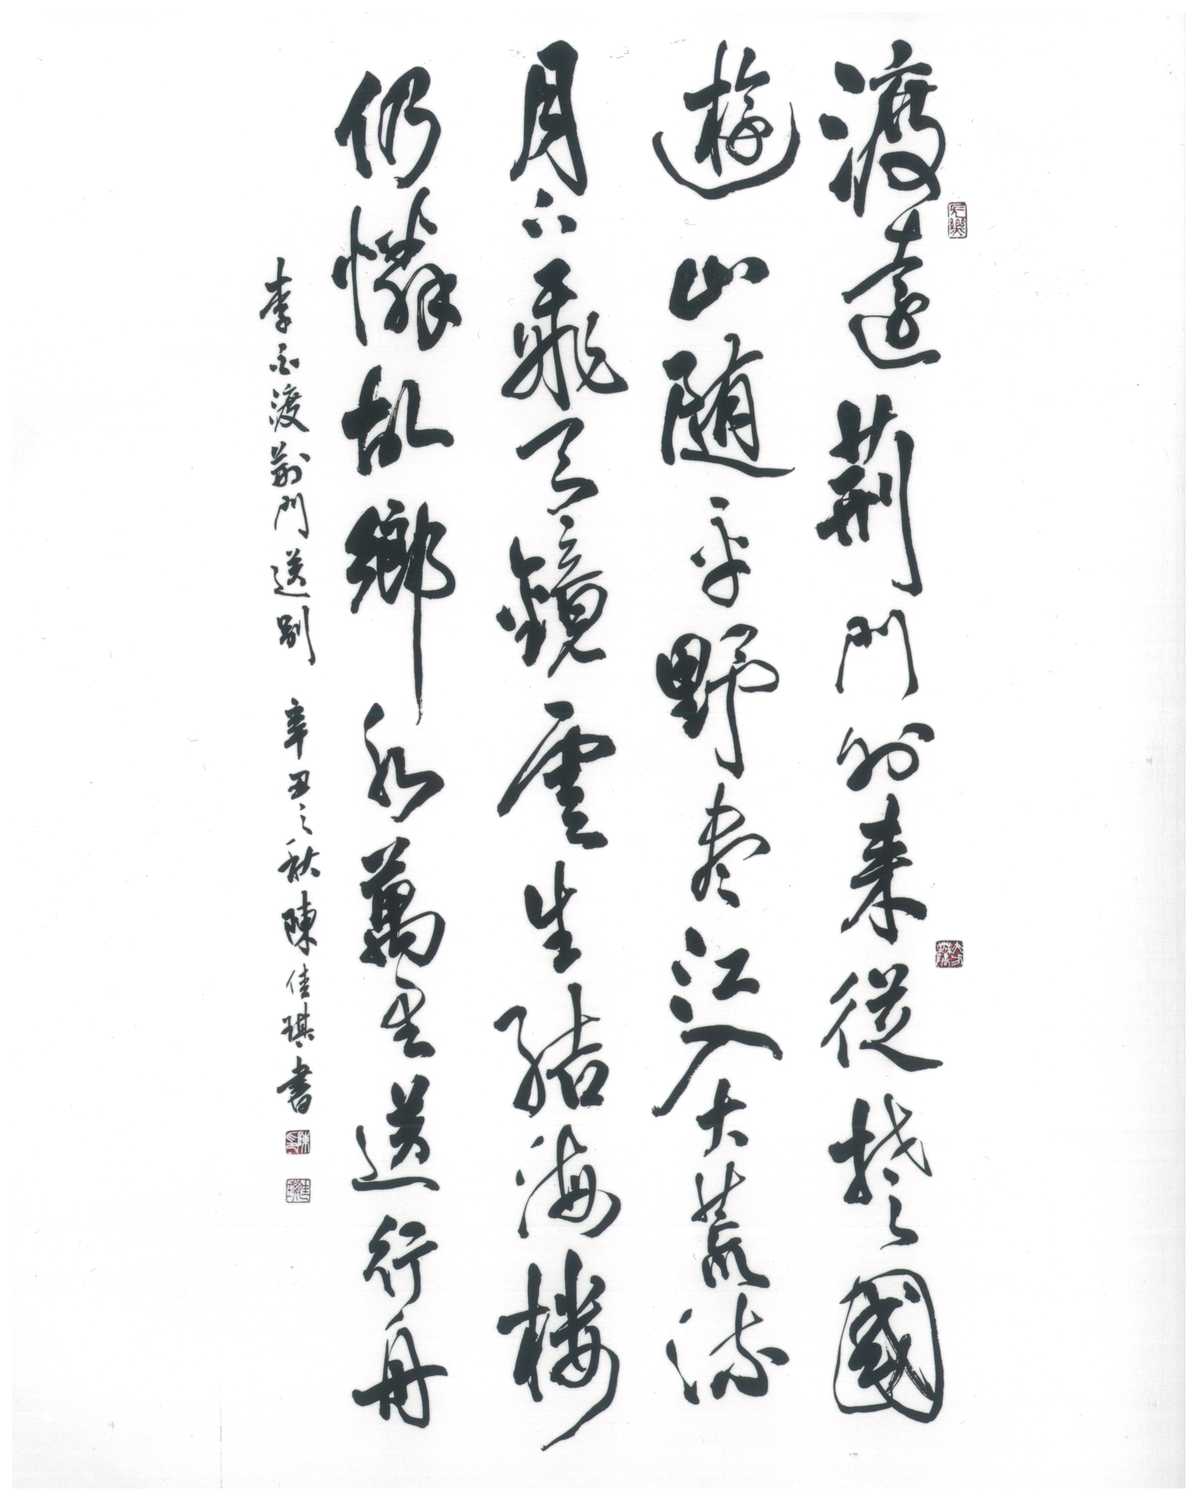 渡遠荆門外来從楚國
遊山随平野尽江入大荒流
月下飛天鏡雲生結海楼
仍憐故鄉水萬里送行舟
李白渡荆門送别 辛丑之秋陳佳琪書